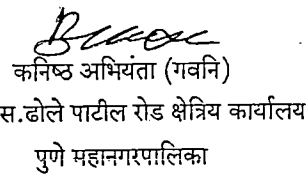 कनिष्ठ अभियंता (गवनि)
स.ढोले पाटील रोड क्षेत्रिय कार्यालय
पुणे महानगरपालिका